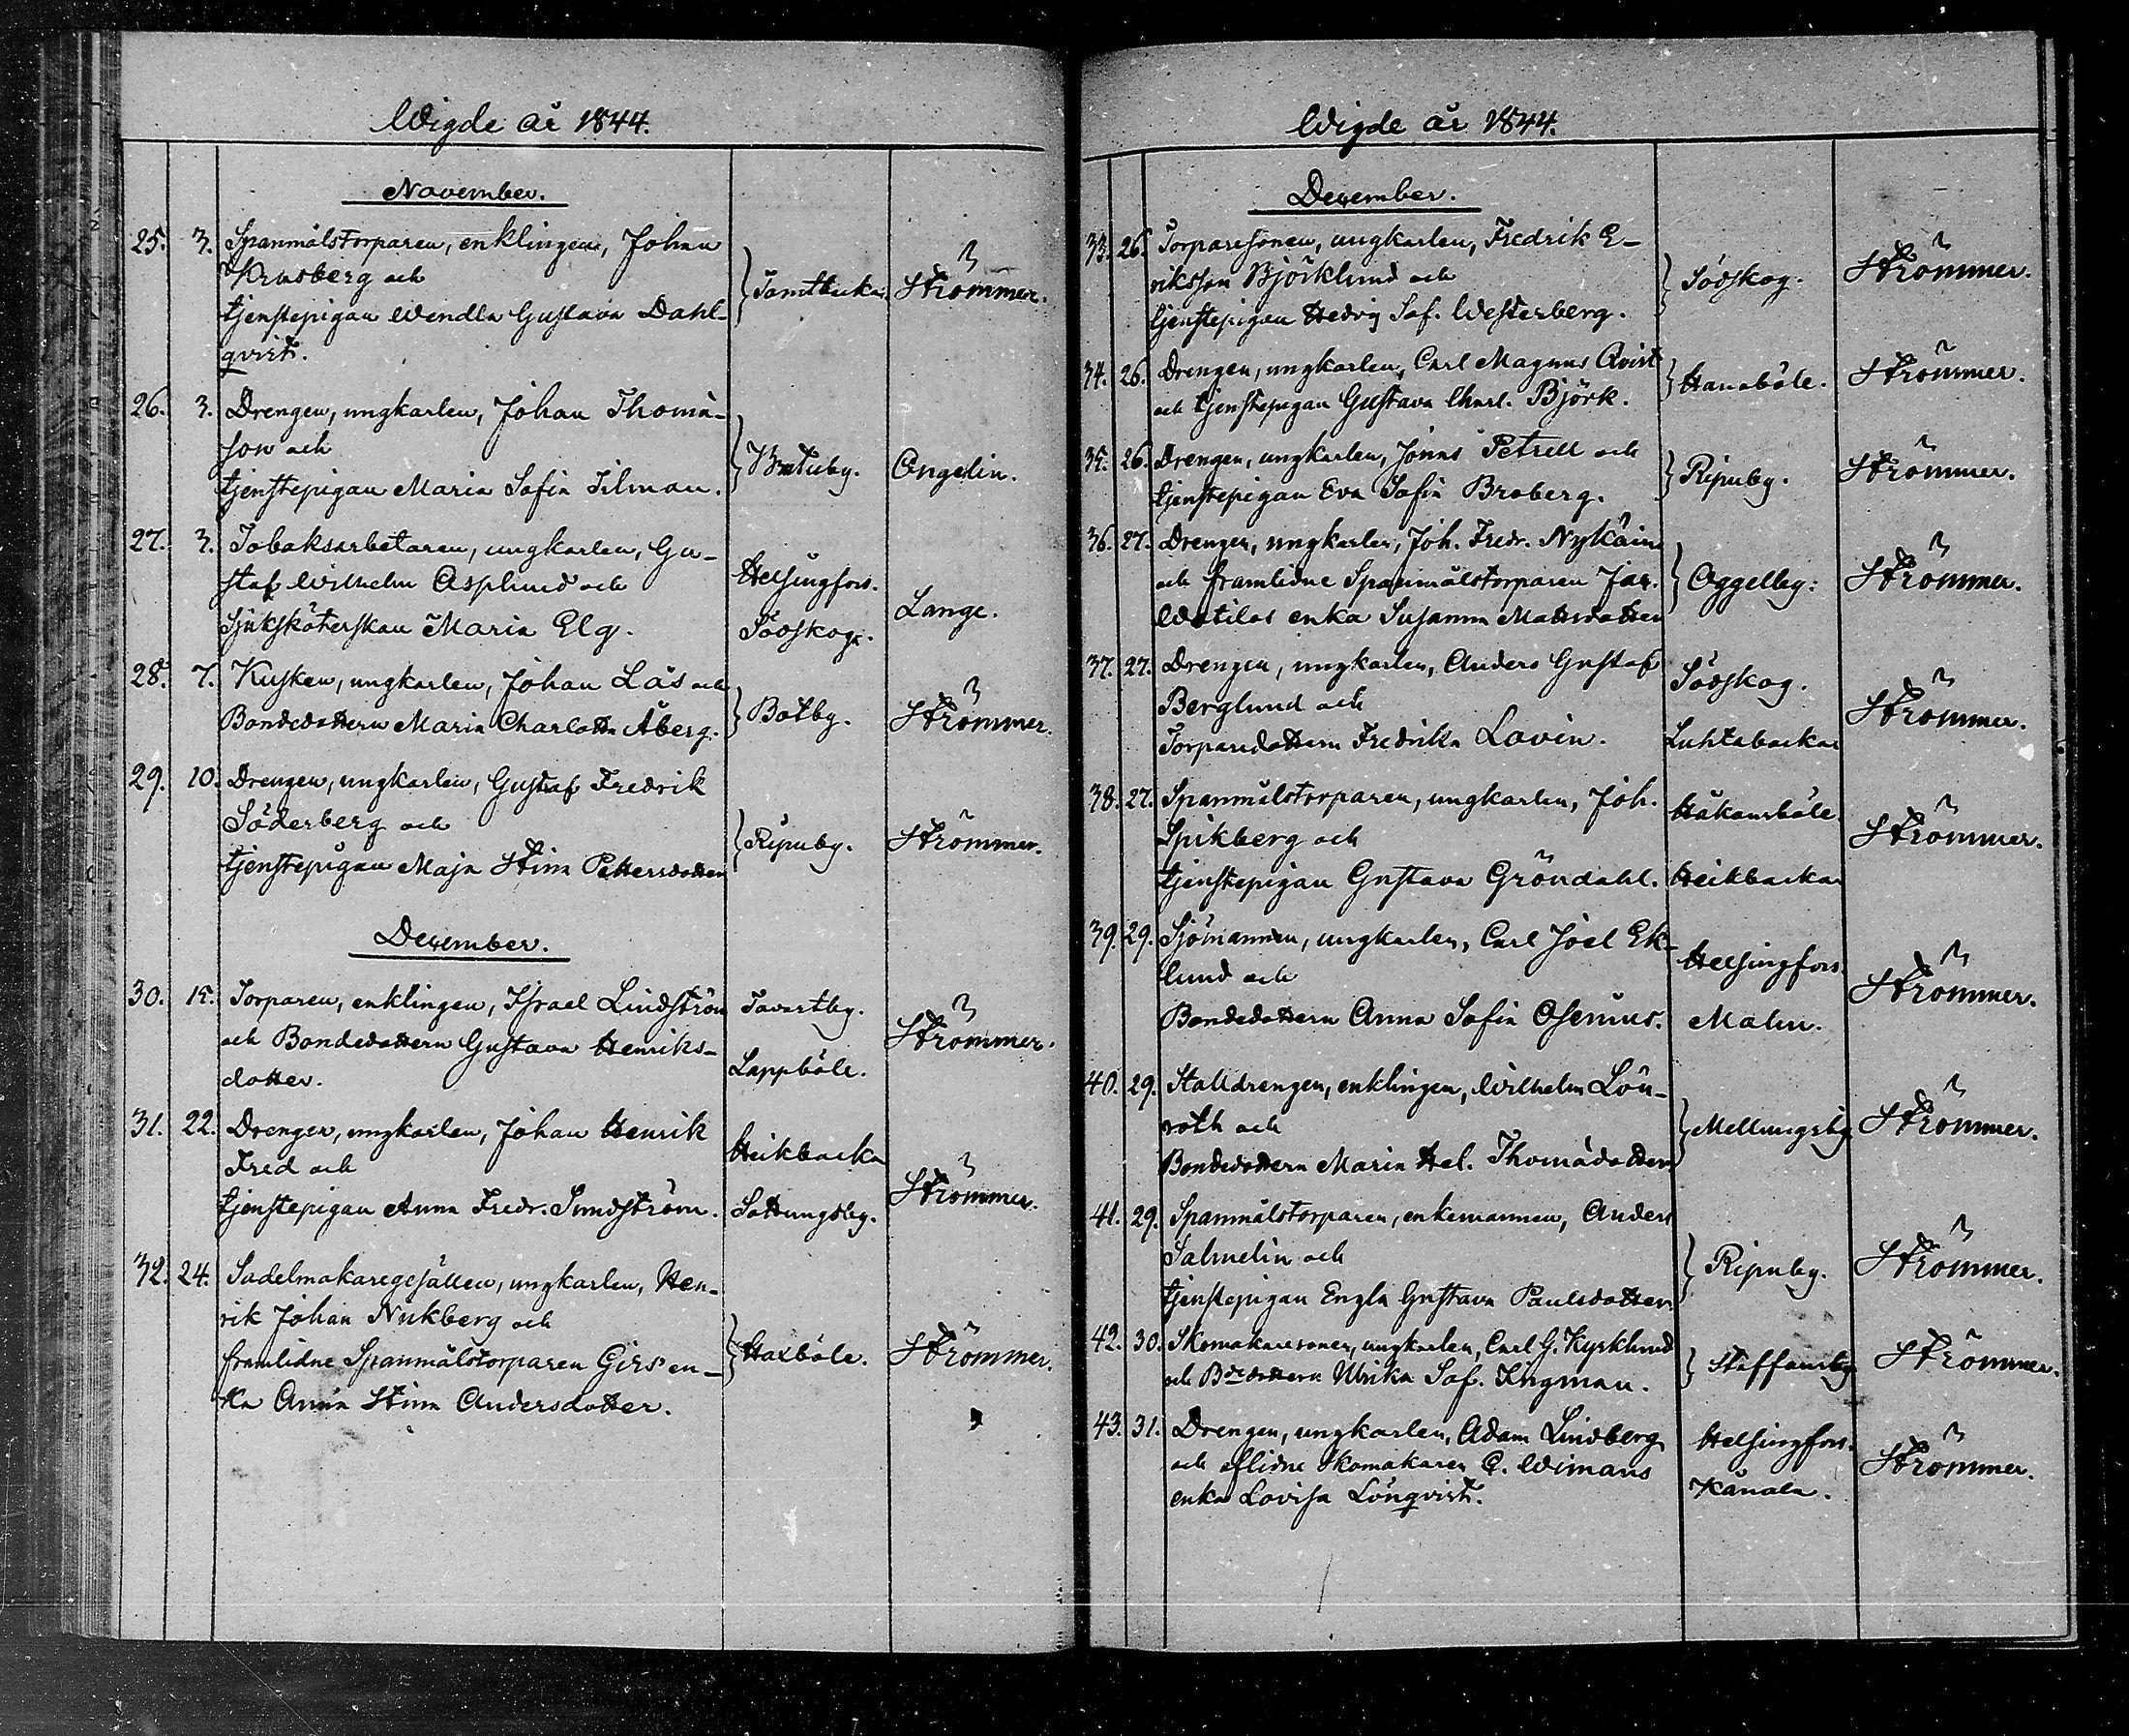 Wigde år 1844.
November.
25. 3. Spanmålstorparen, enklingen, Johan
Krusberg och
tjenstepigan Wendla Gustava Dahl-
qvist.
Tomtbacka. Strömmer.
26. 3. Drengen, ungkarlen, Johan Thomas-
son och
tjenstepigan Maria Sofia Tilman.
Botuby. Angelin.
27. 3. Tobaksarbetaren, ungkarlen, Gu-
staf Wilhelm Asplund och
Sjuksköterskan Maria Elg.
Helsingfors.
Södskog.
Lange.
28. 7. Kusken, ungkarlen, Johan Lås och
Bondedottern Maria Charlotta Åberg.
Botby. Strömmer.
29. 10. Drengen, ungkarlen, Gustaf Fredrik
Söderberg och
tjenstepigan Maja Stina Pettersdotter
Ripuby. Strömmer.
December.
30. 15. Torparen, enklingen, Israel Lindström
och Bondedottern Gustava Henriks-
dotter.
Tavastby.
Lappböle.
Strömmer.
31. 22. Drengen, ungkarlen, Johan Henrik
Fred och
tjenstepigan Anna Fredr. Sundström.
Heikbacka
Sottungsby.
Strömmer.
32. 24. Sadelmakaregesällen, ungkarlen, Hen-
rik Johan Nickberg och
framlidne Spanmålstorparen Girs' en-
ka Anna Stina Andersdotter.
Haxböle. Strömmer.
Wigde år 1844.
December.
33. 26. Torparesonen, ungkarlen, Fredrik E-
riksson Björklund och
tjenstepigan Hedvig Sof. Westerberg.
Södskog. Strömmer.
34. 26. Drengen, ungkarlen, Carl Magnus Qvist
och tjenstepigan Gustava Charl. Björk.
Hanaböle. Strömmer.
35. 26. Drengen, ungkarlen, Jonas Petrell och
tjenstepigan Eva Sofia Broberg.
Ripuby. Strömmer.
36. 27. Drengen, ungkarlen, Joh. Fredr. Nykäin
och framlidne Spanmålstorparen Jac.
Watilas enka Susanna Mattsdotter
Oggelby. Strömmer.
37. 27. Drengen, ungkarlen, Anders Gustaf
Berglund och
Torparedottern Fredrika Lovin.
Södskog.
Luhtabacka
Strömmer.
38. 27. Spanmålstorparen, ungkarlen, Joh.
Spikberg och
tjenstepigan Gustava Gröndahl.
Håkansböle
Heikbacka
Strömmer.
39. 29. Sjömannen, ungkarlen, Carl Joel Ek-
lund och
Bondedottern Anna Sofia Osenius.
Helsingfors
Malm.
Strömmer.
40. 29. Stalldrengen, enklingen, Wilhelm Lön-
roth och
Bondedottern Maria Hel. Thomasdotter
Mellungsby Strömmer.
41. 29. Spanmålstorparen, enkemannen, Anders
Salmelin och
tjenstepigan Engla Gustava Paulsdotter
Ripuby. Strömmer.
42. 30. Skomakaresonen, ungkarlen, Carl G. Kyrklund
och Bdedottern Ulrika Sof. Ingman.
Staffansby Strömmer.
43. 31. Drengen, ungkarlen, Adam Lindberg
och aflidne Skomakaren C. Wimans
enka Lovisa Lönqvist.
Helsingfors.
Kånala.
Strömmer.